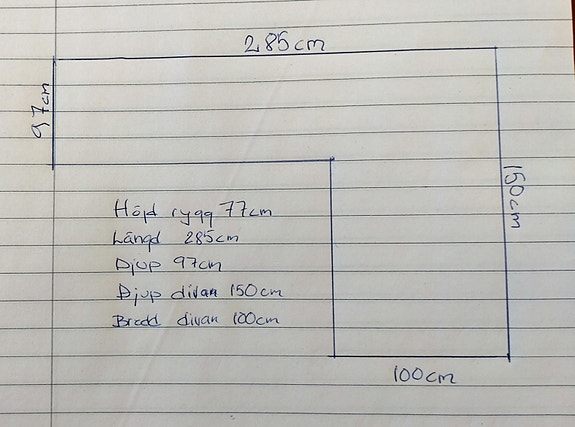 285cm
97cm
150cm
Höjd rygg 77cm
Längd 285cm
Djup 97cm
Djup divan 150cm
Bredd divan 100cm
100cm